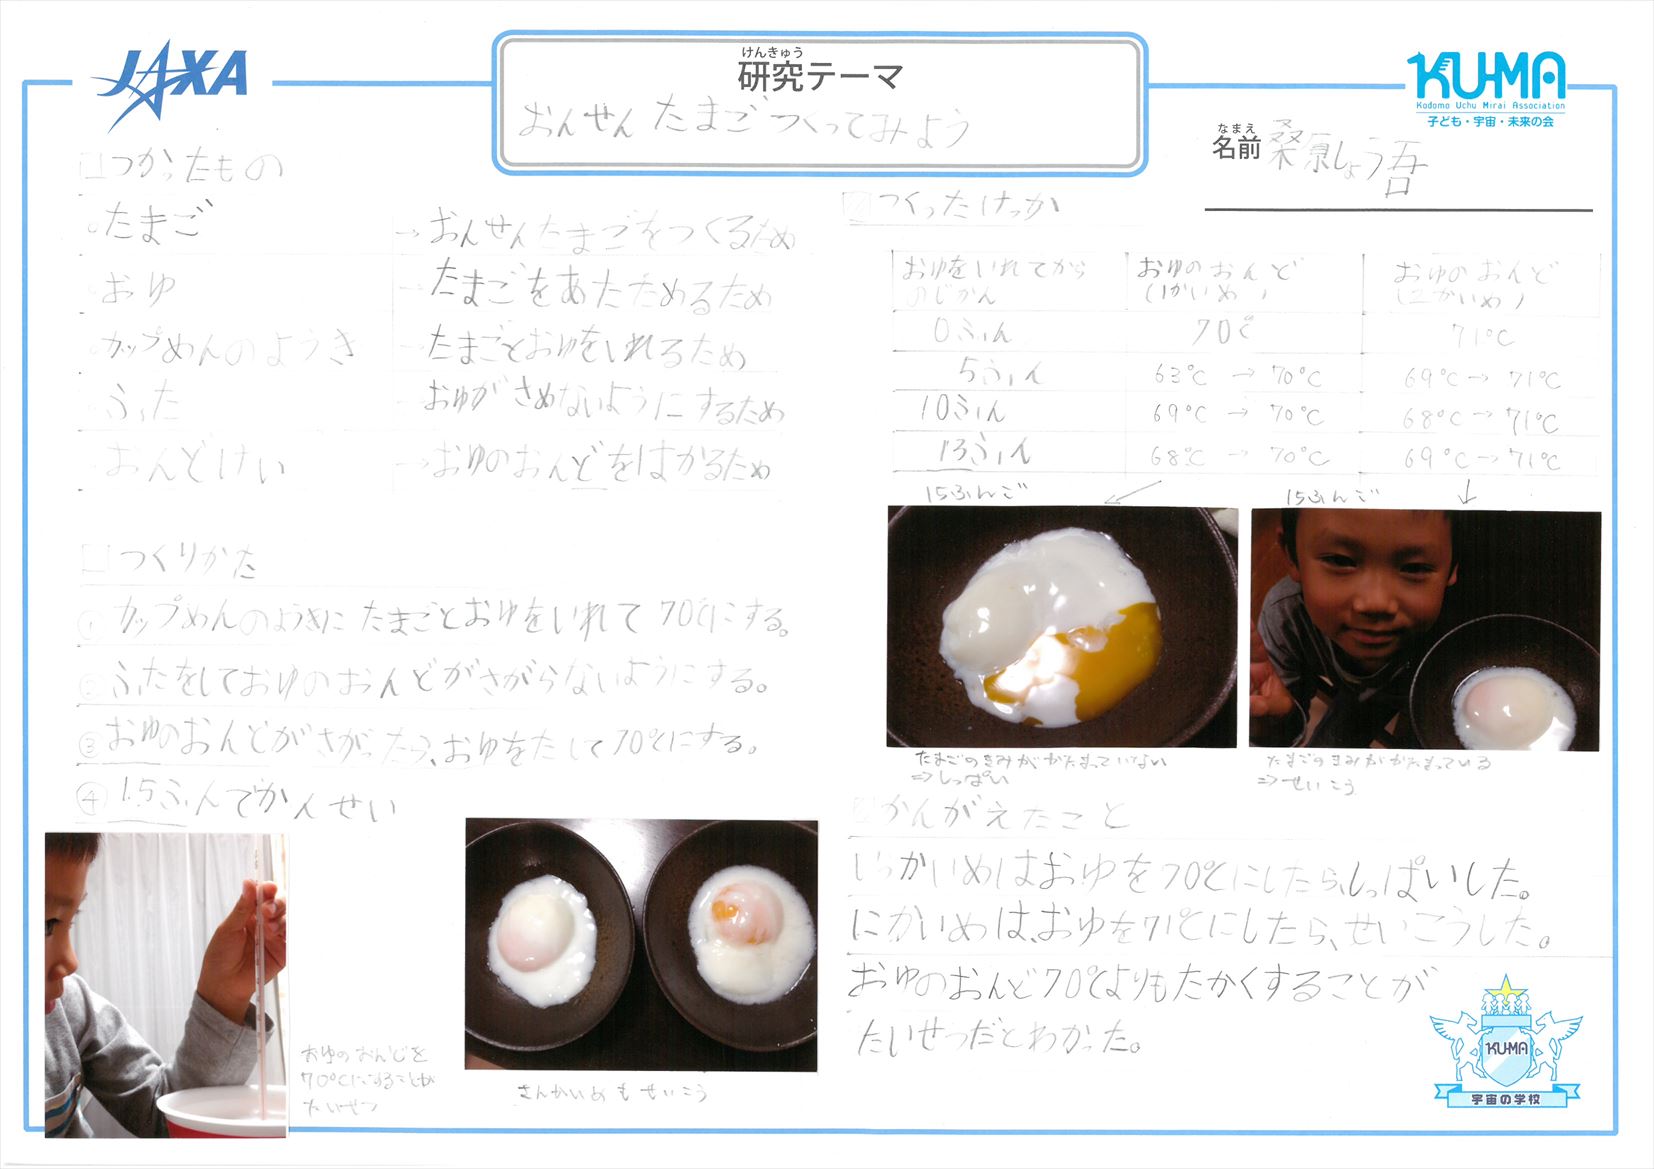 JAXA
けんきゅう
研究テーマ
おんせん たまご つくってみよう
KU-MA
Kodomo Uchu Mirai Association
子ども・宇宙・未来の会
なまえ
名前 桑原しょう吾
つかったもの
たまご → おんせんたまごをつくるため
おゆ → たまごをあたためるため
カップめんのようき → たまごとおゆをいれるため
ふた → おゆがさめないようにするため
おんどけい → おゆのおんどをはかるため
つくりかた
① カップめんのようきにたまごとおゆをいれて70℃にする。
② ふたをしておゆのおんどがさがらないようにする。
③ おゆのおんどがさがったら、おゆをたして70℃にする。
④ 15ふんでかんせい
おゆのおんどを
70℃にすることが
たいせつ
さんかいめもせいこう
つくったけっか
おゆをいれてから
のじかん
おゆのおんど
(1かいめ)
おゆのおんど
(2かいめ)
0ふん 70℃ 71℃
5ふん 63℃ → 70℃ 69℃ → 71℃
10ふん 69℃ → 70℃ 68℃ → 71℃
13ふん 68℃ → 70℃ 69℃ → 71℃
15ふんご
15ふんご
たまごのきみがかたまっていない
⇒しっぱい
たまごのきみがかたまっている
⇒せいこう
かんがえたこと
いっかいめはおゆを70℃にしたら、しっぱいした。
にかいめは、おゆを71℃にしたら、せいこうした。
おゆのおんど70℃よりもたかくすることが
たいせつだとわかった。
KUMA
宇宙の学校